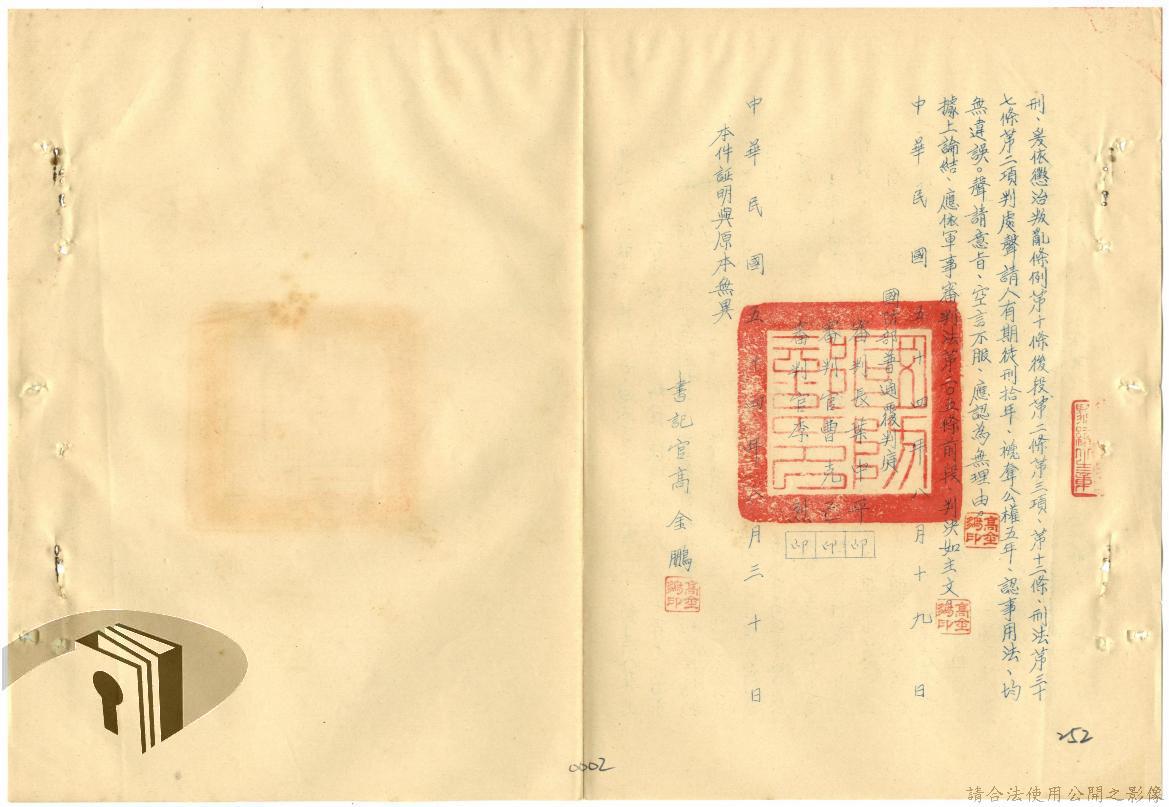 刑、爰依懲治叛亂條例第十條後段第二條第三項、第十二條、刑法第三十
七條第二項判處聲請人有期徒刑拾年、褫奪公權五年、認事用法、均
無違誤。聲請意旨、空言不服、應認為無理由。
據上論結、應依軍事審判法第二百五條前段、判決如主文。
中華民國五十四年八月十九日
國防部普通覆判庭
審判長葉中平
審判官曹克
審判官李
印
印
印
中華民國五十四年八月三十日
本件証明與原本無異
書記官高金鵬
高金鵬印
高金鵬印
高金鵬印
252
0002
請合法使用公開之影像